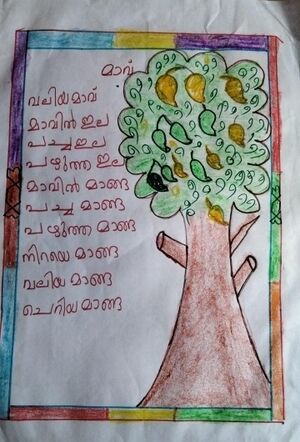 മാവ്
വലിയമാവ്
മാവിൻ ഇല
പച്ചഇല
പഴുത്ത ഇല
മാവിൻ മാങ്ങ
പച്ച മാങ്ങ
പഴുത്ത മാങ്ങ
നിറയെ മാങ്ങ
വലിയ മാങ്ങ
ചെറിയ മാങ്ങ